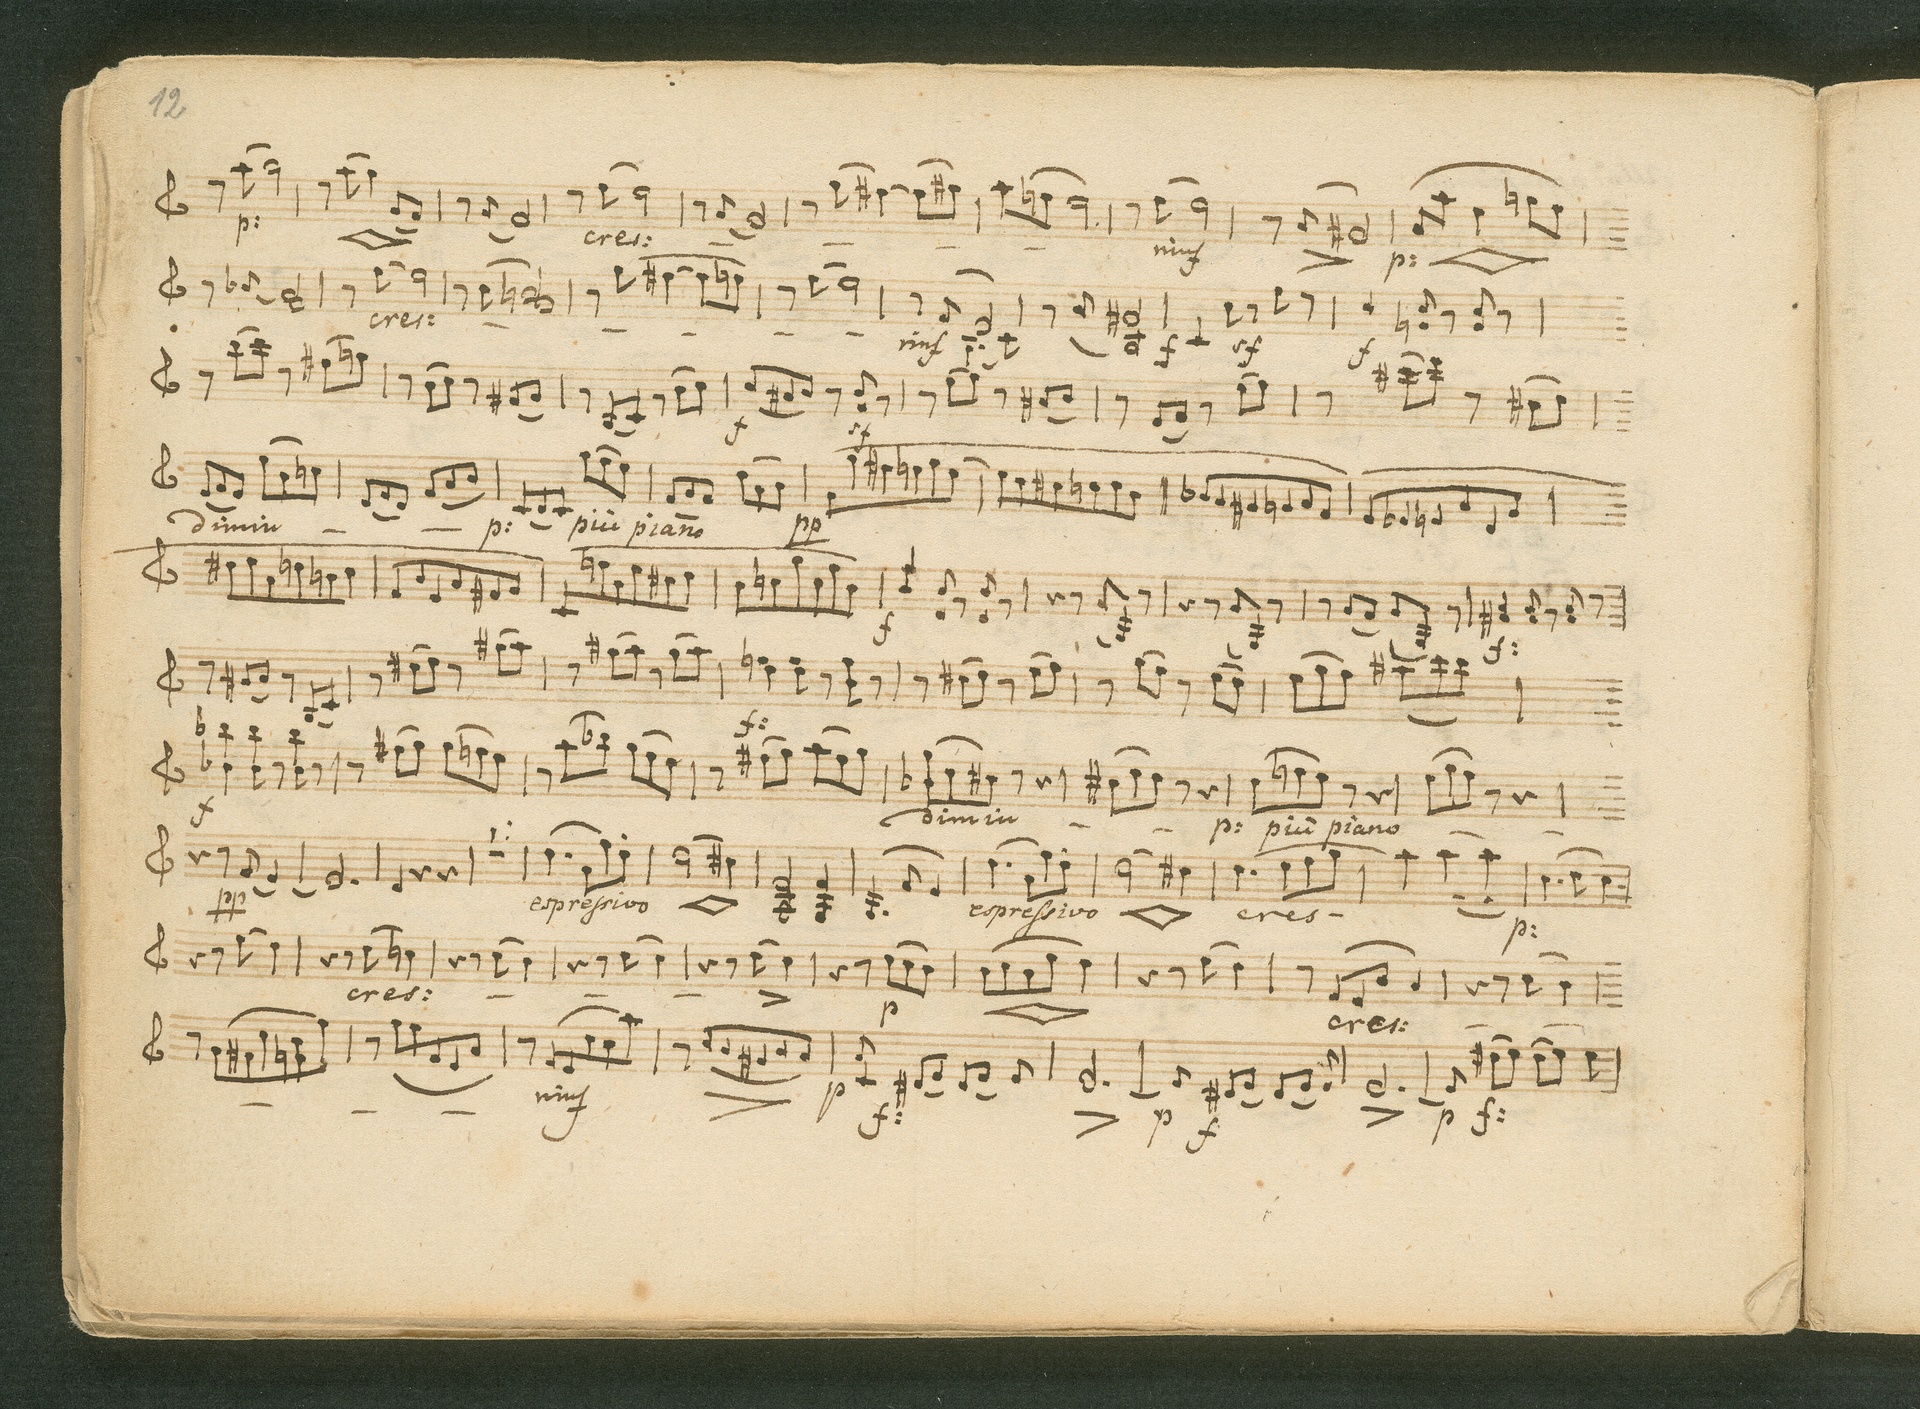 12
p: cres: rinf p:
cres: rinf f sf f
f sf
dimin p: più piano pp
f f:
f:
f dimin p: più piano
pp espressivo espressivo cres- p:
cres: p cres:
rinf p f: p f p f: